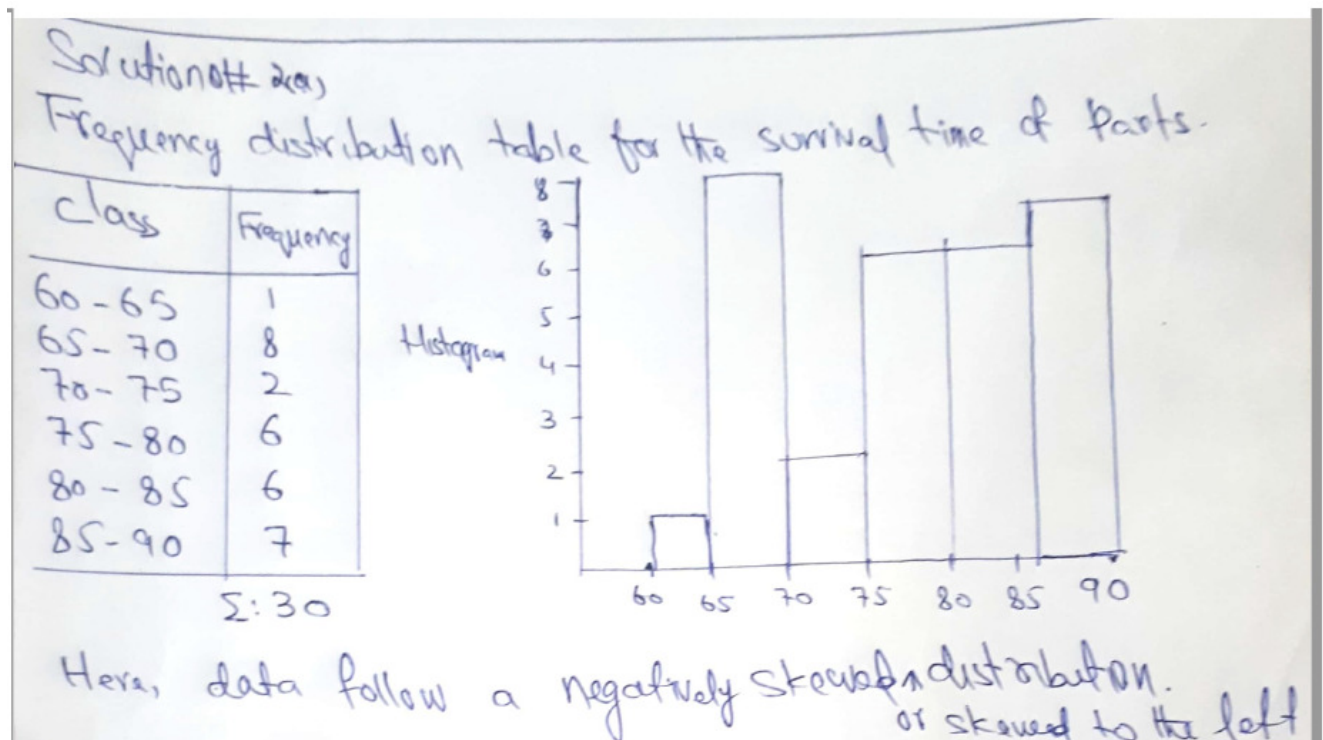 Solution# 2(a)
Frequency distribution table for the survival time of Parts.
Class Frequency
60-65 1
65-70 8
70-75 2
75-80 6
80-85 6
85-90 7
Σ:30
Histogram
8
7
6
5
4
3
2
1
60 65 70 75 80 85 90
Here, data follow a negatively skewed distribution.
or skewed to the left